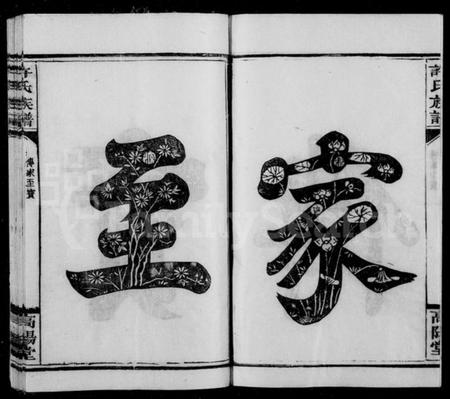 許氏族譜
高陽堂
家
至
許氏族譜
傳家至寶
高陽堂